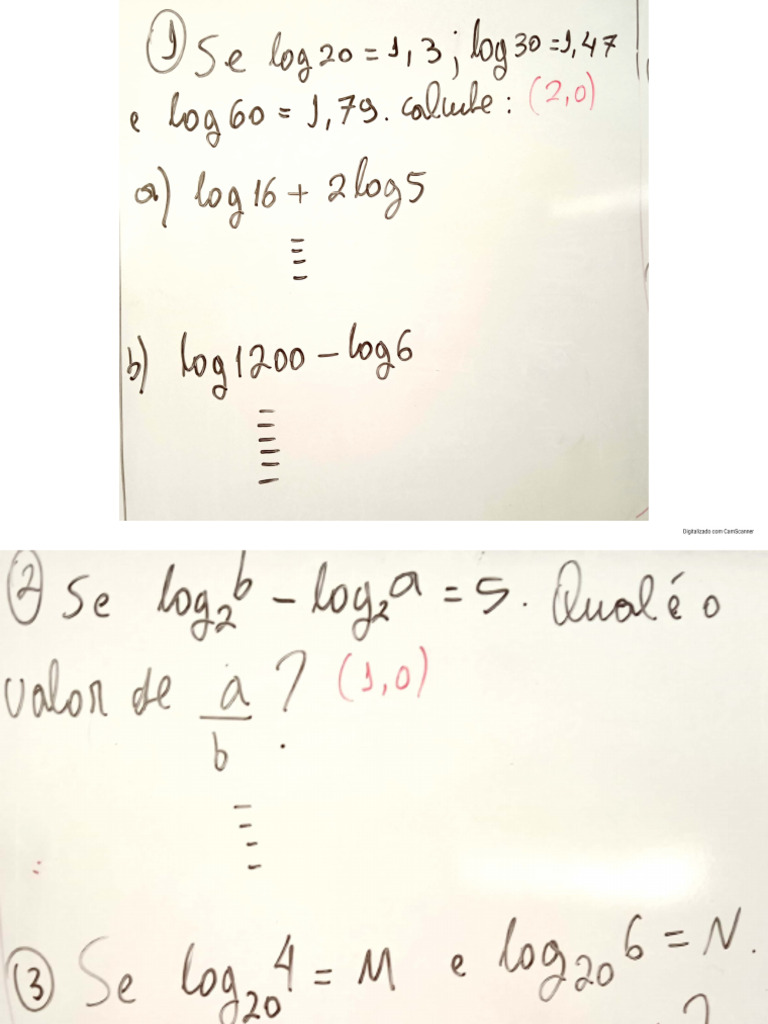 ① Se log 20 = 1,3 ; log 30 = 1,47
e log 60 = 1,79. calcule : (2,0)
a) log 16 + 2 log 5
b) log 1200 – log 6
Digitalizado com CamScanner
② Se log₂ b – log₂ a = 5. Qual é o
valor de a/b ? (1,0)
③ Se log₂₀ 4 = M e log₂₀ 6 = N.
?